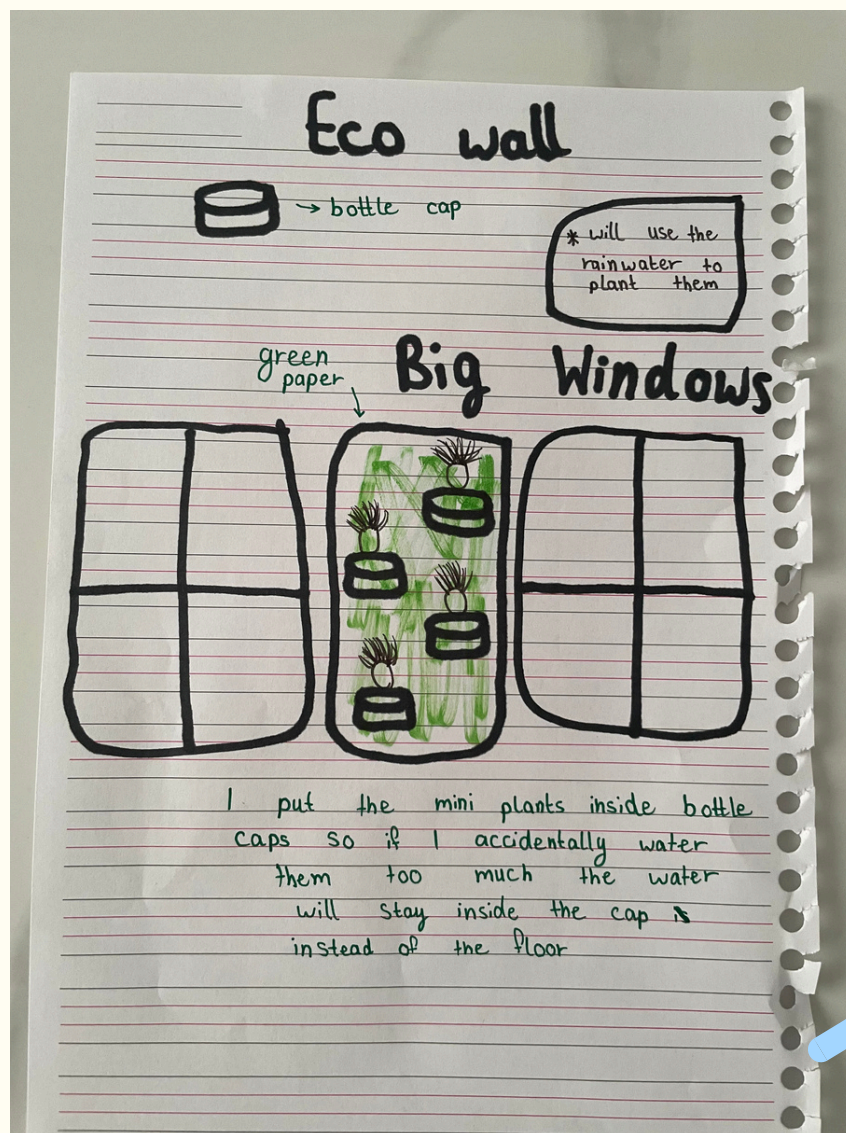 Eco wall
→ bottle cap
* will use the
rainwater to
plant them
green
paper
Big Windows
I put the mini plants inside bottle
caps so if I accidentally water
them too much the water
will stay inside the cap
instead of the floor